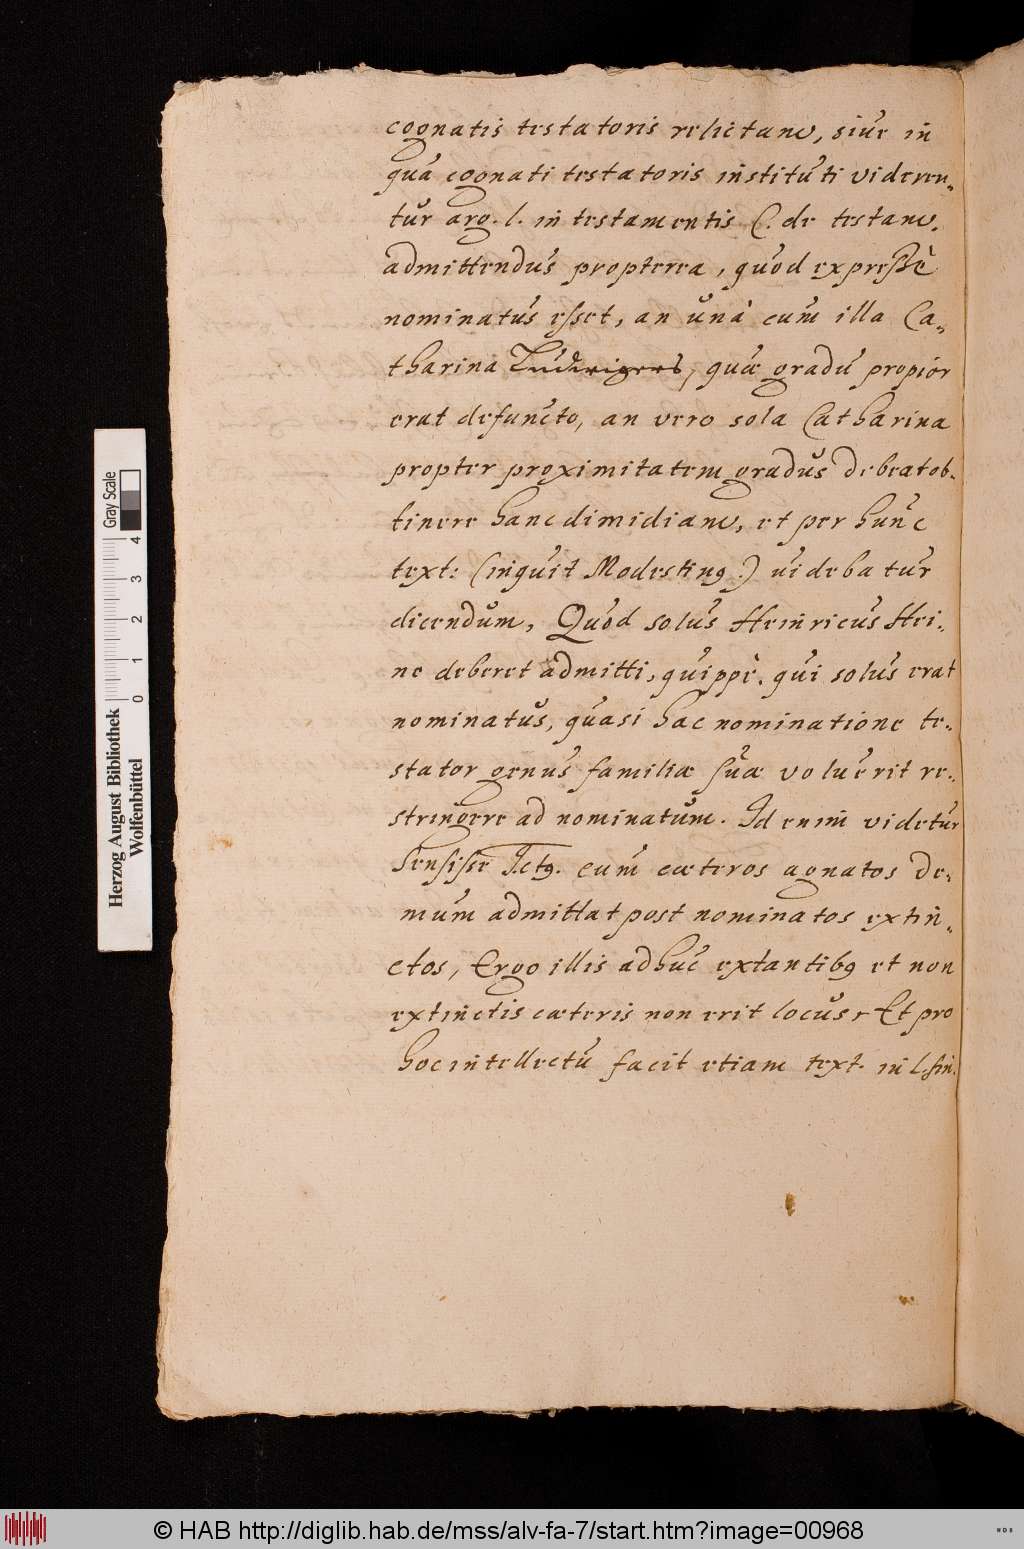 cognatis testatoris relictam, siue in
qua cognati testatoris instituti videren-
tur arg. l. in testamentis C. de testam.
admittendus propterea, quod expresse
nominatus esset, an unà cum illa Ca-
tharina Ludwigers, quæ gradu propior
erat defuncto, an vero sola Catharina
propter proximitatem gradus debeat ob-
tinere hanc dimidiam, et per hunc
text: (inquit Modestin9.) uidebatur
dicendum, Quod solus Heinricus Hei-
ne deberet admitti, quippè, qui solus erat
nominatus, quasi hac nominatione te-
stator genus familiæ suæ voluerit re-
stringere ad nominatum. Id enim videtur
sensisse Jct9. cum cæteros agnatos de-
mum admittat post nominatos extin-
ctos, Ergo illis adhuc extantib9 et non
extinctis cæteris non erit locus, Et pro
hoc intellectu facit etiam text. in l. fin.
Gray Scale
0 1 2 3 4
Herzog August Bibliothek
Wolfenbüttel
© HAB http://diglib.hab.de/mss/alv-fa-7/start.htm?image=00968